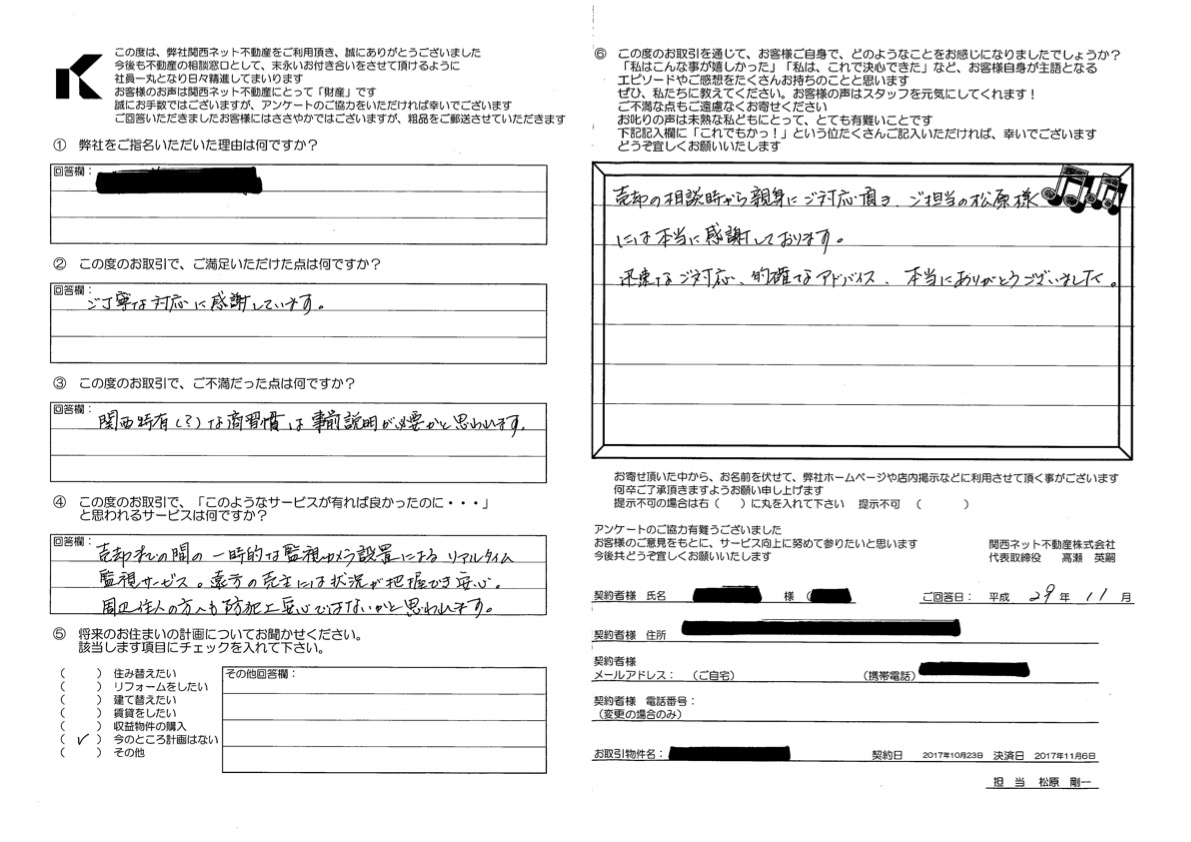 この度は、弊社関西ネット不動産をご利用頂き、誠にありがとうございました
今後も不動産の相談窓口として、末永いお付き合いをさせて頂けるように
社員一丸となり日々精進してまいります
お客様のお声は関西ネット不動産にとって「財産」です
誠にお手数ではございますが、アンケートのご協力をいただければ幸いでございます
ご回答いただきましたお客様にはささやかではございますが、粗品をご郵送させていただきます
① 弊社をご指名いただいた理由は何ですか？
回答欄：
② この度のお取引で、ご満足いただけた点は何ですか？
回答欄：
ご丁寧な対応に感謝しています。
③ この度のお取引で、ご不満だった点は何ですか？
回答欄：
関西特有(？)な商習慣は事前説明が必要かと思われます。
④ この度のお取引で、「このようなサービスが有れば良かったのに・・・」
と思われるサービスは何ですか？
回答欄：
売却までの間の一時的な監視カメラ設置によるリアルタイム
監視サービス。遠方の売主には状況が把握でき安心。
周辺住人の方へも防犯上安心ではないかと思われます。
⑤ 将来のお住まいの計画についてお聞かせください。
該当します項目にチェックを入れて下さい。
（　　）住み替えたい
（　　）リフォームをしたい
（　　）建て替えたい
（　　）賃貸をしたい
（　　）収益物件の購入
（ ✓ ）今のところ計画はない
（　　）その他
その他回答欄：
⑥ この度のお取引を通じて、お客様ご自身で、どのようなことをお感じになりましたでしょうか？
「私はこんな事が嬉しかった」「私は、これで決心できた」など、お客様自身が主語となる
エピソードやご感想をたくさんお持ちのことと思います
ぜひ、私たちに教えてください。お客様の声はスタッフを元気にしてくれます！
ご不満な点もご遠慮なくお寄せください
お叱りの声は未熟な私どもにとって、とても有難いことです
下記記入欄に「これでもかっ！」という位たくさんご記入いただければ、幸いでございます
どうぞ宜しくお願いいたします
売却の相談時から親身にご対応頂き、ご担当の松原様
には本当に感謝しております。
迅速なご対応、的確なアドバイス、本当にありがとうございました。
お寄せ頂いた中から、お名前を伏せて、弊社ホームページや店内掲示などに利用させて頂く事がございます
何卒ご了承頂きますようお願い申し上げます
提示不可の場合は右（　　）に丸を入れて下さい　提示不可　（　　　）
アンケートのご協力有難うございました
お客様のご意見をもとに、サービス向上に努めて参りたいと思います
今後共どうぞ宜しくお願いいたします
関西ネット不動産株式会社
代表取締役　高瀬　英嗣
契約者様 氏名　様（　）　ご回答日：　平成 29 年 11 月
契約者様 住所
契約者様
メールアドレス：　（ご自宅）　（携帯電話）
契約者様 電話番号：
（変更の場合のみ）
お取引物件名：　契約日　2017年10月23日　決済日　2017年11月6日
担　当　松原　剛一